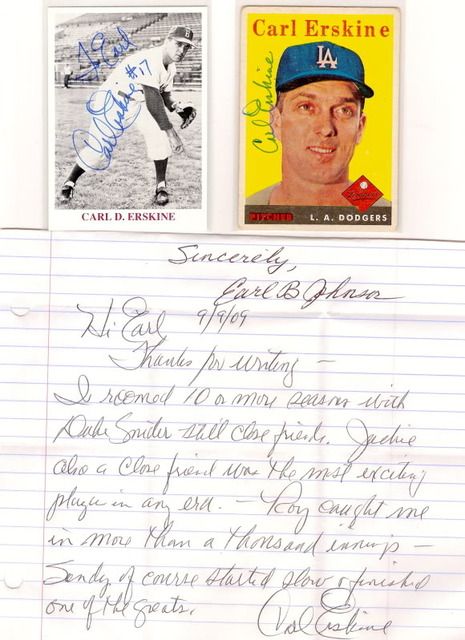 To Earl
Carl Erskine #17
CARL D. ERSKINE
Carl Erskine
Carl Erskine
PITCHER L. A. DODGERS
LA
Dodgers
B
Sincerely,
Earl B Johnson
Hi Earl 9/9/09
Thanks for writing —
I roomed 10 or more seasons with
Duke Snider still close friends. Jackie
also a close friend was the most exciting
player in any era. — Roy caught me
in more than a thousand innings —
Sandy of course started slow & finished
one of the greats.
Carl Erskine